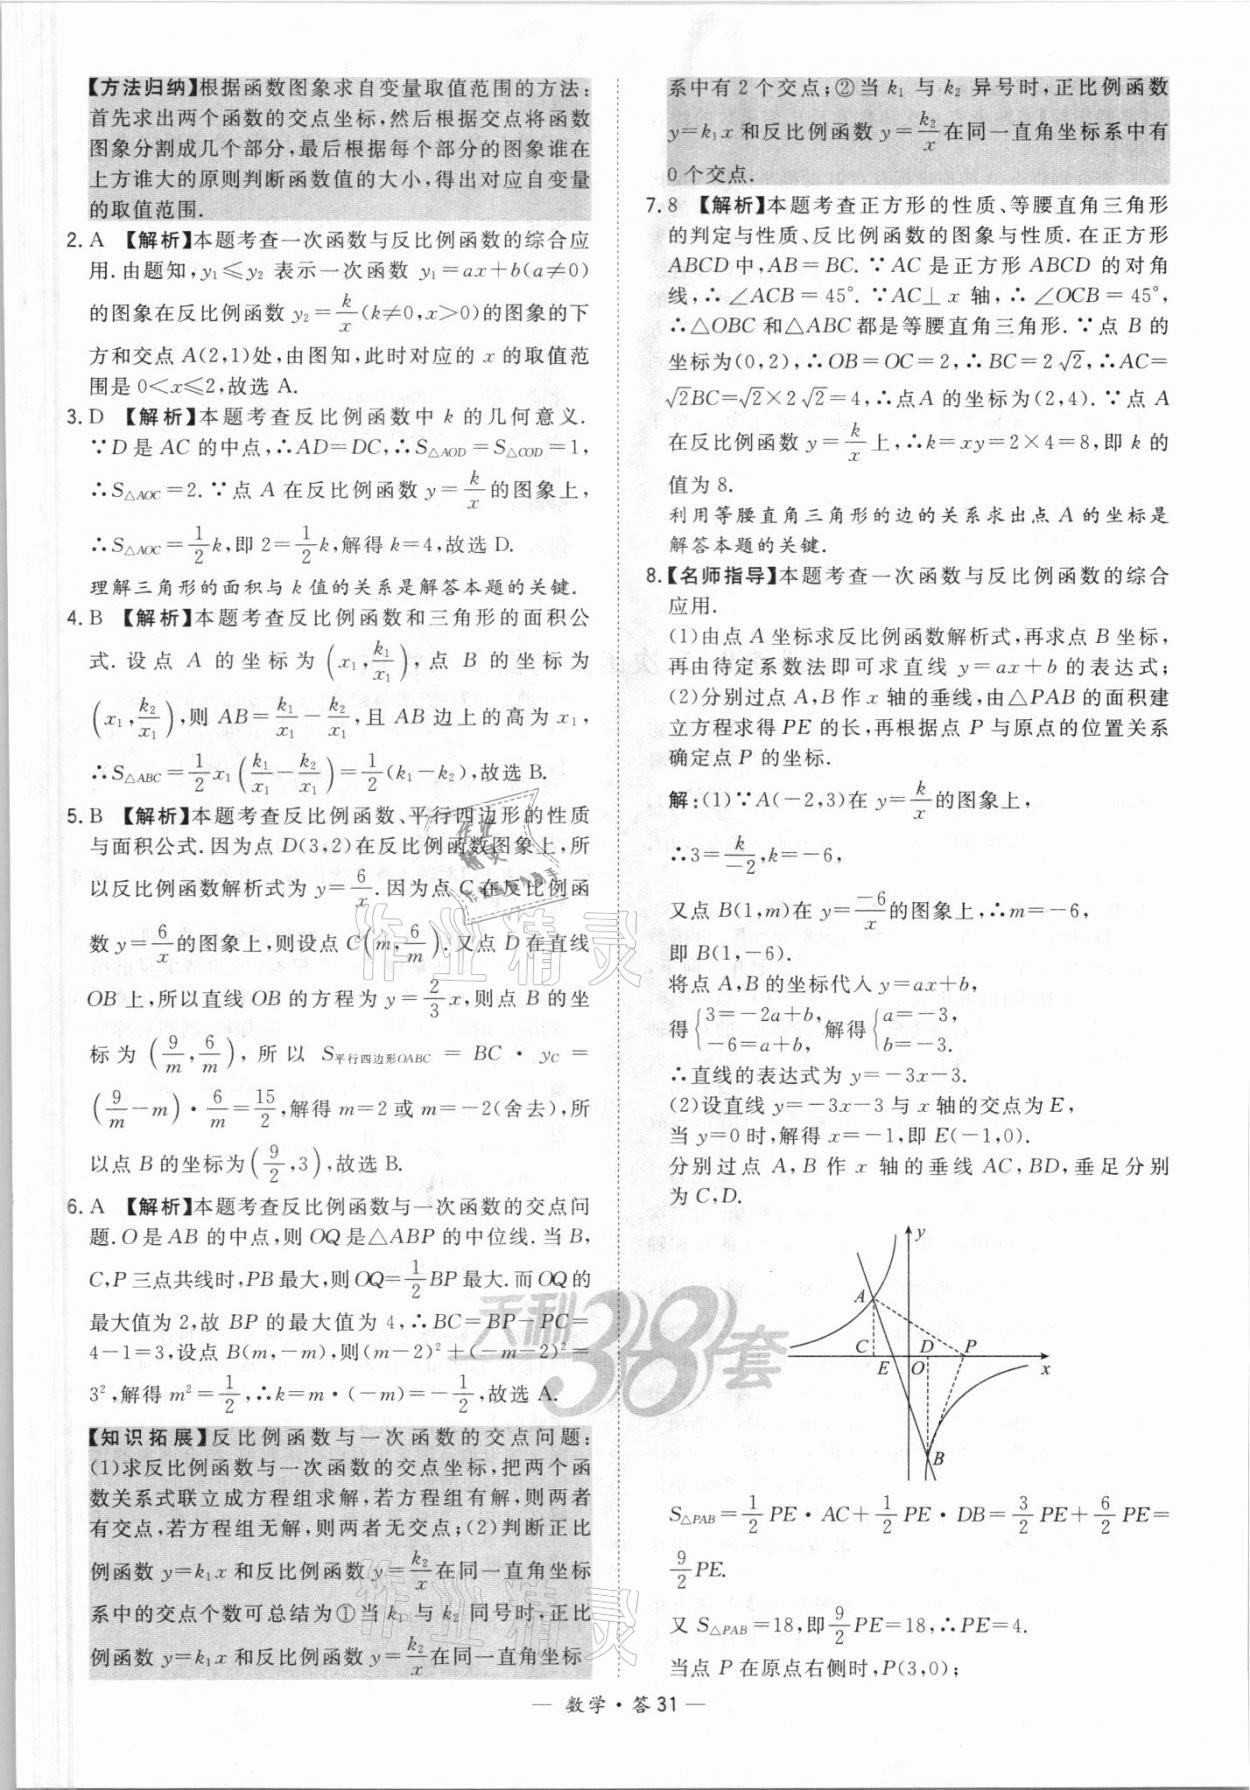 【方法归纳】根据函数图象求自变量取值范围的方法:
首先求出两个函数的交点坐标,然后根据交点将函数
图象分割成几个部分,最后根据每个部分的图象谁在
上方谁大的原则判断函数值的大小,得出对应自变量
的取值范围.
2. A 【解析】本题考查一次函数与反比例函数的综合应
用.由题知,y₁≤y₂ 表示一次函数 y₁=ax+b(a≠0)
的图象在反比例函数 y₂=k/x(k≠0,x>0)的图象的下
方和交点 A(2,1)处,由图知,此时对应的 x 的取值范
围是 0<x≤2,故选 A.
3. D 【解析】本题考查反比例函数中 k 的几何意义.
∵D 是 AC 的中点,∴AD=DC,∴S△AOD=S△COD=1,
∴S△AOC=2.∵点 A 在反比例函数 y=k/x 的图象上,
∴S△AOC=1/2k,即 2=1/2k,解得 k=4,故选 D.
理解三角形的面积与 k 值的关系是解答本题的关键.
4. B 【解析】本题考查反比例函数和三角形的面积公
式.设点 A 的坐标为(x₁,k₁/x₁),点 B 的坐标为
(x₁,k₂/x₁),则 AB=k₁/x₁-k₂/x₁,且 AB 边上的高为 x₁,
∴S△ABC=1/2x₁(k₁/x₁-k₂/x₁)=1/2(k₁-k₂),故选 B.
5. B 【解析】本题考查反比例函数、平行四边形的性质
与面积公式.因为点 D(3,2)在反比例函数图象上,所
以反比例函数解析式为 y=6/x.因为点 C 在反比例函
数 y=6/x 的图象上,则设点 C(m,6/m).又点 D 在直线
OB 上,所以直线 OB 的方程为 y=2/3x,则点 B 的坐
标为(9/m,6/m),所以 S平行四边形OABC=BC·yC=
(9/m-m)·6/m=15/2,解得 m=2 或 m=-2(舍去),所
以点 B 的坐标为(9/2,3),故选 B.
6. A 【解析】本题考查反比例函数与一次函数的交点问
题.O 是 AB 的中点,则 OQ 是△ABP 的中位线.当 B,
C,P 三点共线时,PB 最大,则 OQ=1/2BP 最大.而 OQ 的
最大值为 2,故 BP 的最大值为 4,∴BC=BP-PC=
4-1=3,设点 B(m,-m),则(m-2)²+(-m-2)²=
3²,解得 m²=1/2,∴k=m·(-m)=-1/2,故选 A.
【知识拓展】反比例函数与一次函数的交点问题:
(1)求反比例函数与一次函数的交点坐标,把两个函
数关系式联立成方程组求解,若方程组有解,则两者
有交点,若方程组无解,则两者无交点;(2)判断正比
例函数 y=k₁x 和反比例函数 y=k₂/x 在同一直角坐标
系中的交点个数可总结为①当 k₁ 与 k₂ 同号时,正比
例函数 y=k₁x 和反比例函数 y=k₂/x 在同一直角坐标
系中有 2 个交点;②当 k₁ 与 k₂ 异号时,正比例函数
y=k₁x 和反比例函数 y=k₂/x 在同一直角坐标系中有
0 个交点.
7. 8 【解析】本题考查正方形的性质、等腰直角三角形
的判定与性质、反比例函数的图象与性质.在正方形
ABCD 中,AB=BC.∵AC 是正方形 ABCD 的对角
线,∴∠ACB=45°.∵AC⊥x 轴,∴∠OCB=45°,
∴△OBC 和△ABC 都是等腰直角三角形.∵点 B 的
坐标为(0,2),∴OB=OC=2,∴BC=2√2,∴AC=
√2BC=√2×2√2=4,∴点 A 的坐标为(2,4).∵点 A
在反比例函数 y=k/x 上,∴k=xy=2×4=8,即 k 的
值为 8.
利用等腰直角三角形的边的关系求出点 A 的坐标是
解答本题的关键.
8.【名师指导】本题考查一次函数与反比例函数的综合
应用.
(1)由点 A 坐标求反比例函数解析式,再求点 B 坐标,
再由待定系数法即可求直线 y=ax+b 的表达式;
(2)分别过点 A,B 作 x 轴的垂线,由△PAB 的面积建
立方程求得 PE 的长,再根据点 P 与原点的位置关系
确定点 P 的坐标.
解:(1)∵A(-2,3)在 y=k/x 的图象上,
∴3=k/-2,k=-6,
又点 B(1,m)在 y=-6/x 的图象上,∴m=-6,
即 B(1,-6).
将点 A,B 的坐标代入 y=ax+b,
得{3=-2a+b, -6=a+b, 解得{a=-3, b=-3.
∴直线的表达式为 y=-3x-3.
(2)设直线 y=-3x-3 与 x 轴的交点为 E,
当 y=0 时,解得 x=-1,即 E(-1,0).
分别过点 A,B 作 x 轴的垂线 AC,BD,垂足分别
为 C,D.
y
A
C D P
E O x
B
S△PAB=1/2PE·AC+1/2PE·DB=3/2PE+6/2PE=
9/2PE.
又 S△PAB=18,即9/2PE=18,∴PE=4.
当点 P 在原点右侧时,P(3,0);
— 数学·答 31 —
作业精灵
天利38套
作业精灵